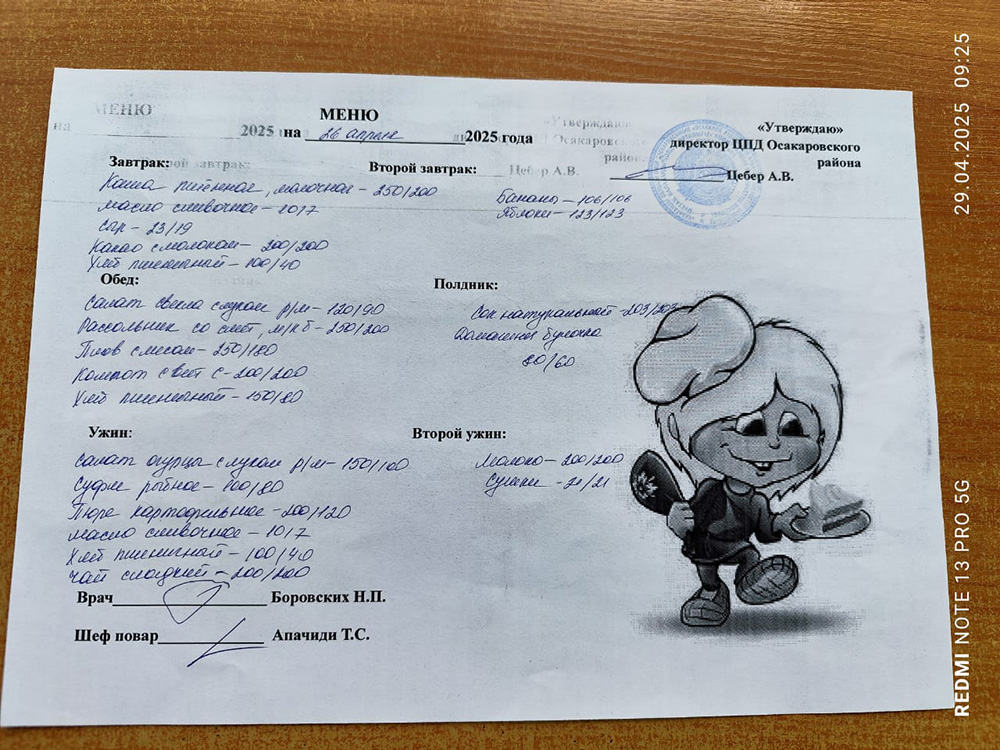 МЕНЮ
МЕНЮ
2025 на 26 апреля 2025 года
«Утверждаю»
директор ЦПД Осакаровского
района
Цебер А.В.
Завтрак:
Каша пшённая, молочная - 250/200
масло сливочное - 10/7
Сыр - 23/19
Какао с молоком - 200/200
Хлеб пшеничный - 100/40
Второй завтрак:
Бананы - 106/106
Яблоки - 123/123
Обед:
Салат свекла с луком р/м - 120/90
Рассольник со смет, м/кб - 250/200
Плов с мясом - 250/180
Компот с вит С - 200/200
Хлеб пшеничный - 150/80
Полдник:
Сок натуральный - 203/203
Домашняя булочка
80/60
Ужин:
Салат огурцы с луком р/м - 150/100
Суфле рыбное - 100/80
Пюре картофельное - 200/120
масло сливочное - 10/7
Хлеб пшеничный - 100/40
Чай сладкий - 200/200
Второй ужин:
Молоко - 200/200
Сушки - 21/21
Врач Боровских Н.П.
Шеф повар Апачиди Т.С.
29.04.2025 09:25
REDMI NOTE 13 PRO 5G